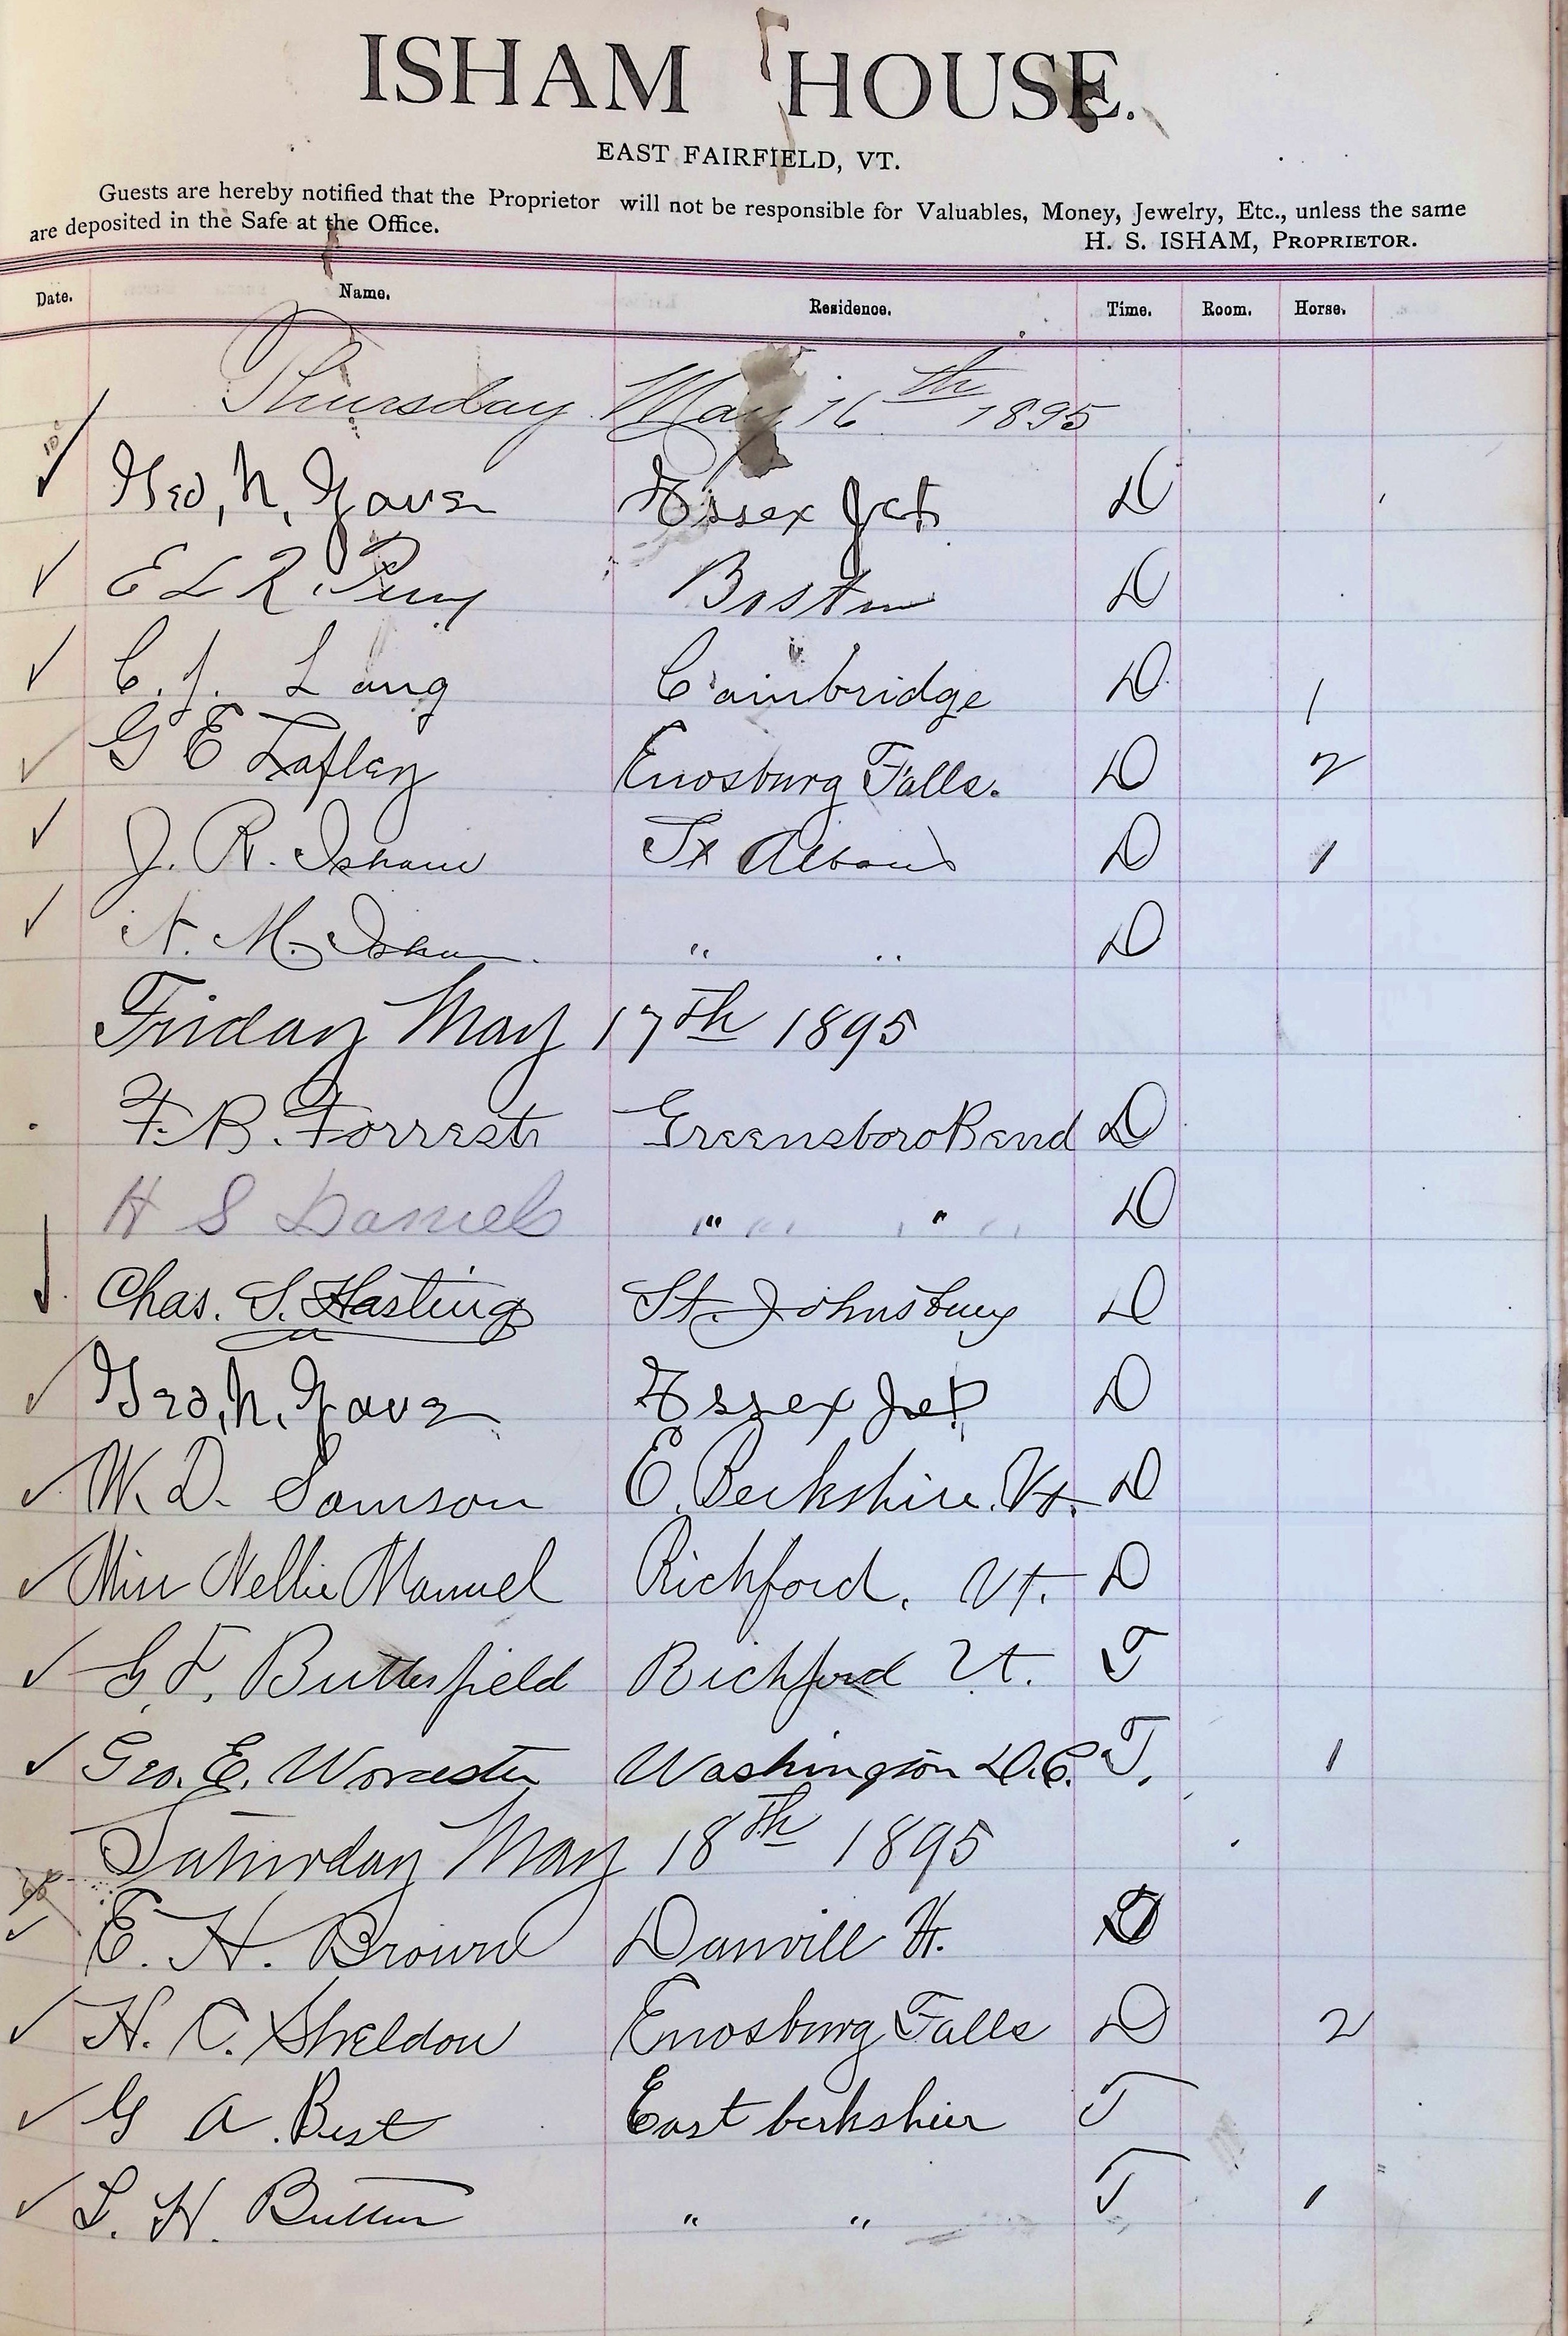 ISHAM HOUSE.
EAST FAIRFIELD, VT.
Guests are hereby notified that the Proprietor will not be responsible for Valuables, Money, Jewelry, Etc., unless the same
are deposited in the Safe at the Office.
H. S. ISHAM, PROPRIETOR.
Date. Name. Residence. Time. Room. Horse.
Thursday May 16th 1895
Geo, N, Gove Essex Jct D
E L R Perry Boston D
C. J. Lang Cambridge D 1
G E Lafley Enosburg Falls. D 2
J. R. Isham St Albans D 1
N. M. Isham " " D
Friday May 17th 1895
F. B. Forrest Greensboro Bend D
H S Daniels " " D
Chas. S. Hastings St. Johnsbury D
Geo, N, Gove Essex Jct D
W. D. Samson E. Berkshire. Vt. D
Miss Nellie Manuel Richford, Vt. D
G. F. Butterfield Richford Vt. T
Geo. E. Worcester Washington D.C. T. 1
Saturday May 18th 1895
E. H. Brown Danvill Vt. D
H. C. Sheldon Enosburg Falls D 2
G A. Best East berkshier T
L. H. " " T 1